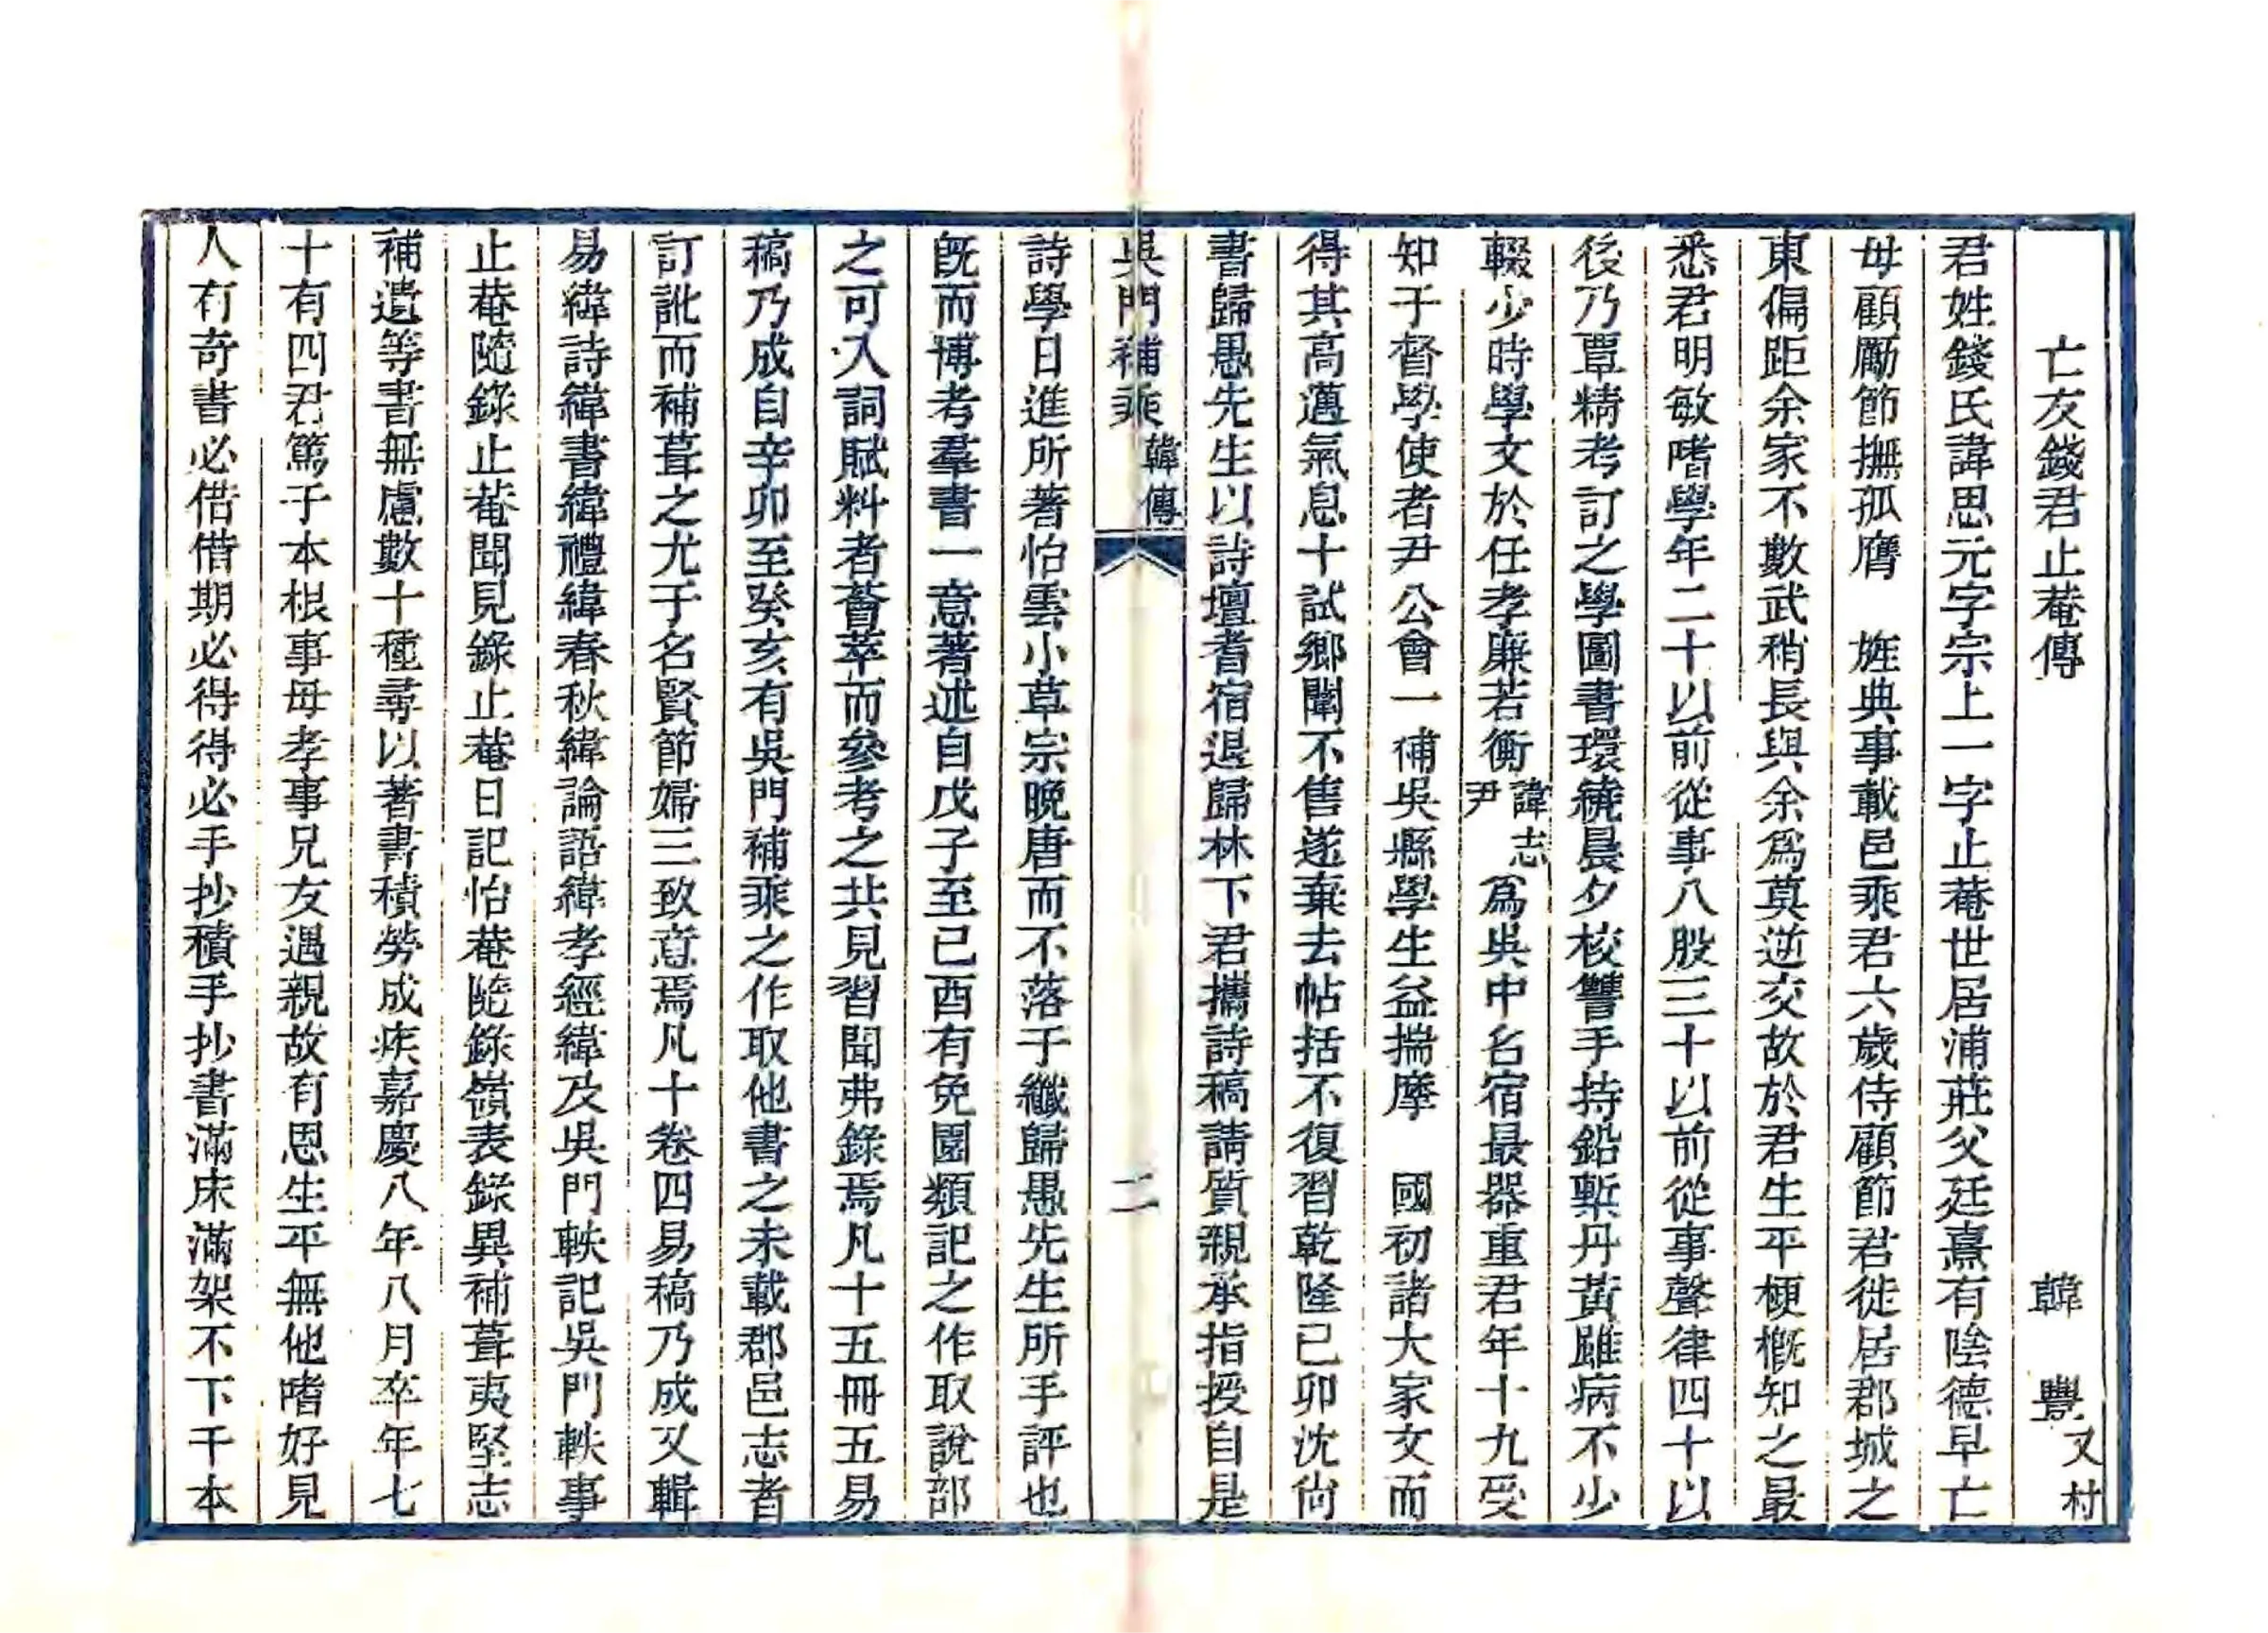 亡友錢君止菴傳 韓豐又村
君姓錢氏諱思元字宗上一字止菴世居浦莊父廷熹有陰德早亡
母顧勵節撫孤膺 旌典事載邑乘君六歲侍顧節君徙居郡城之
東偏距余家不數武稍長與余爲莫逆交故於君生平梗槪知之最
悉君明敏嗜學年二十以前從事八股三十以前從事聲律四十以
後乃覃精考訂之學圖書環繞晨夕校讐手持鉛槧丹黃雖病不少
輟少時學文於任孝廉若衡諱志尹爲吳中名宿最器重君年十九受
知于督學使者尹公會一補吳縣學生益揣摩 國初諸大家文而
得其高邁氣息十試鄉闈不售遂棄去帖括不復習乾隆己卯沈尙
書歸愚先生以詩壇耆宿退歸林下君攜詩稿請質親承指授自是
吳門補乘 韓傳 二
詩學日進所著怡雲小草宗晚唐而不落于纖歸愚先生所手評也
旣而博考羣書一意著述自戊子至己酉有免園類記之作取說部
之可入詞賦料者薈萃而參考之共見習聞弗錄焉凡十五冊五易
稿乃成自辛卯至癸亥有吳門補乘之作取他書之未載郡邑志者
訂訛而補葺之尤于名賢節婦三致意焉凡十卷四易稿乃成又輯
易緯詩緯書緯禮緯春秋緯論語緯孝經緯及吳門軼記吳門軼事
止菴隨錄止菴聞見錄止菴日記怡菴隨錄嶺表錄異補葺夷堅志
補遺等書無慮數十種尋以著書積勞成疾嘉慶八年八月卒年七
十有四君篤于本根事母孝事兄友遇親故有恩生平無他嗜好見
人有奇書必借借期必得得必手抄積手抄書滿床滿架不下千本